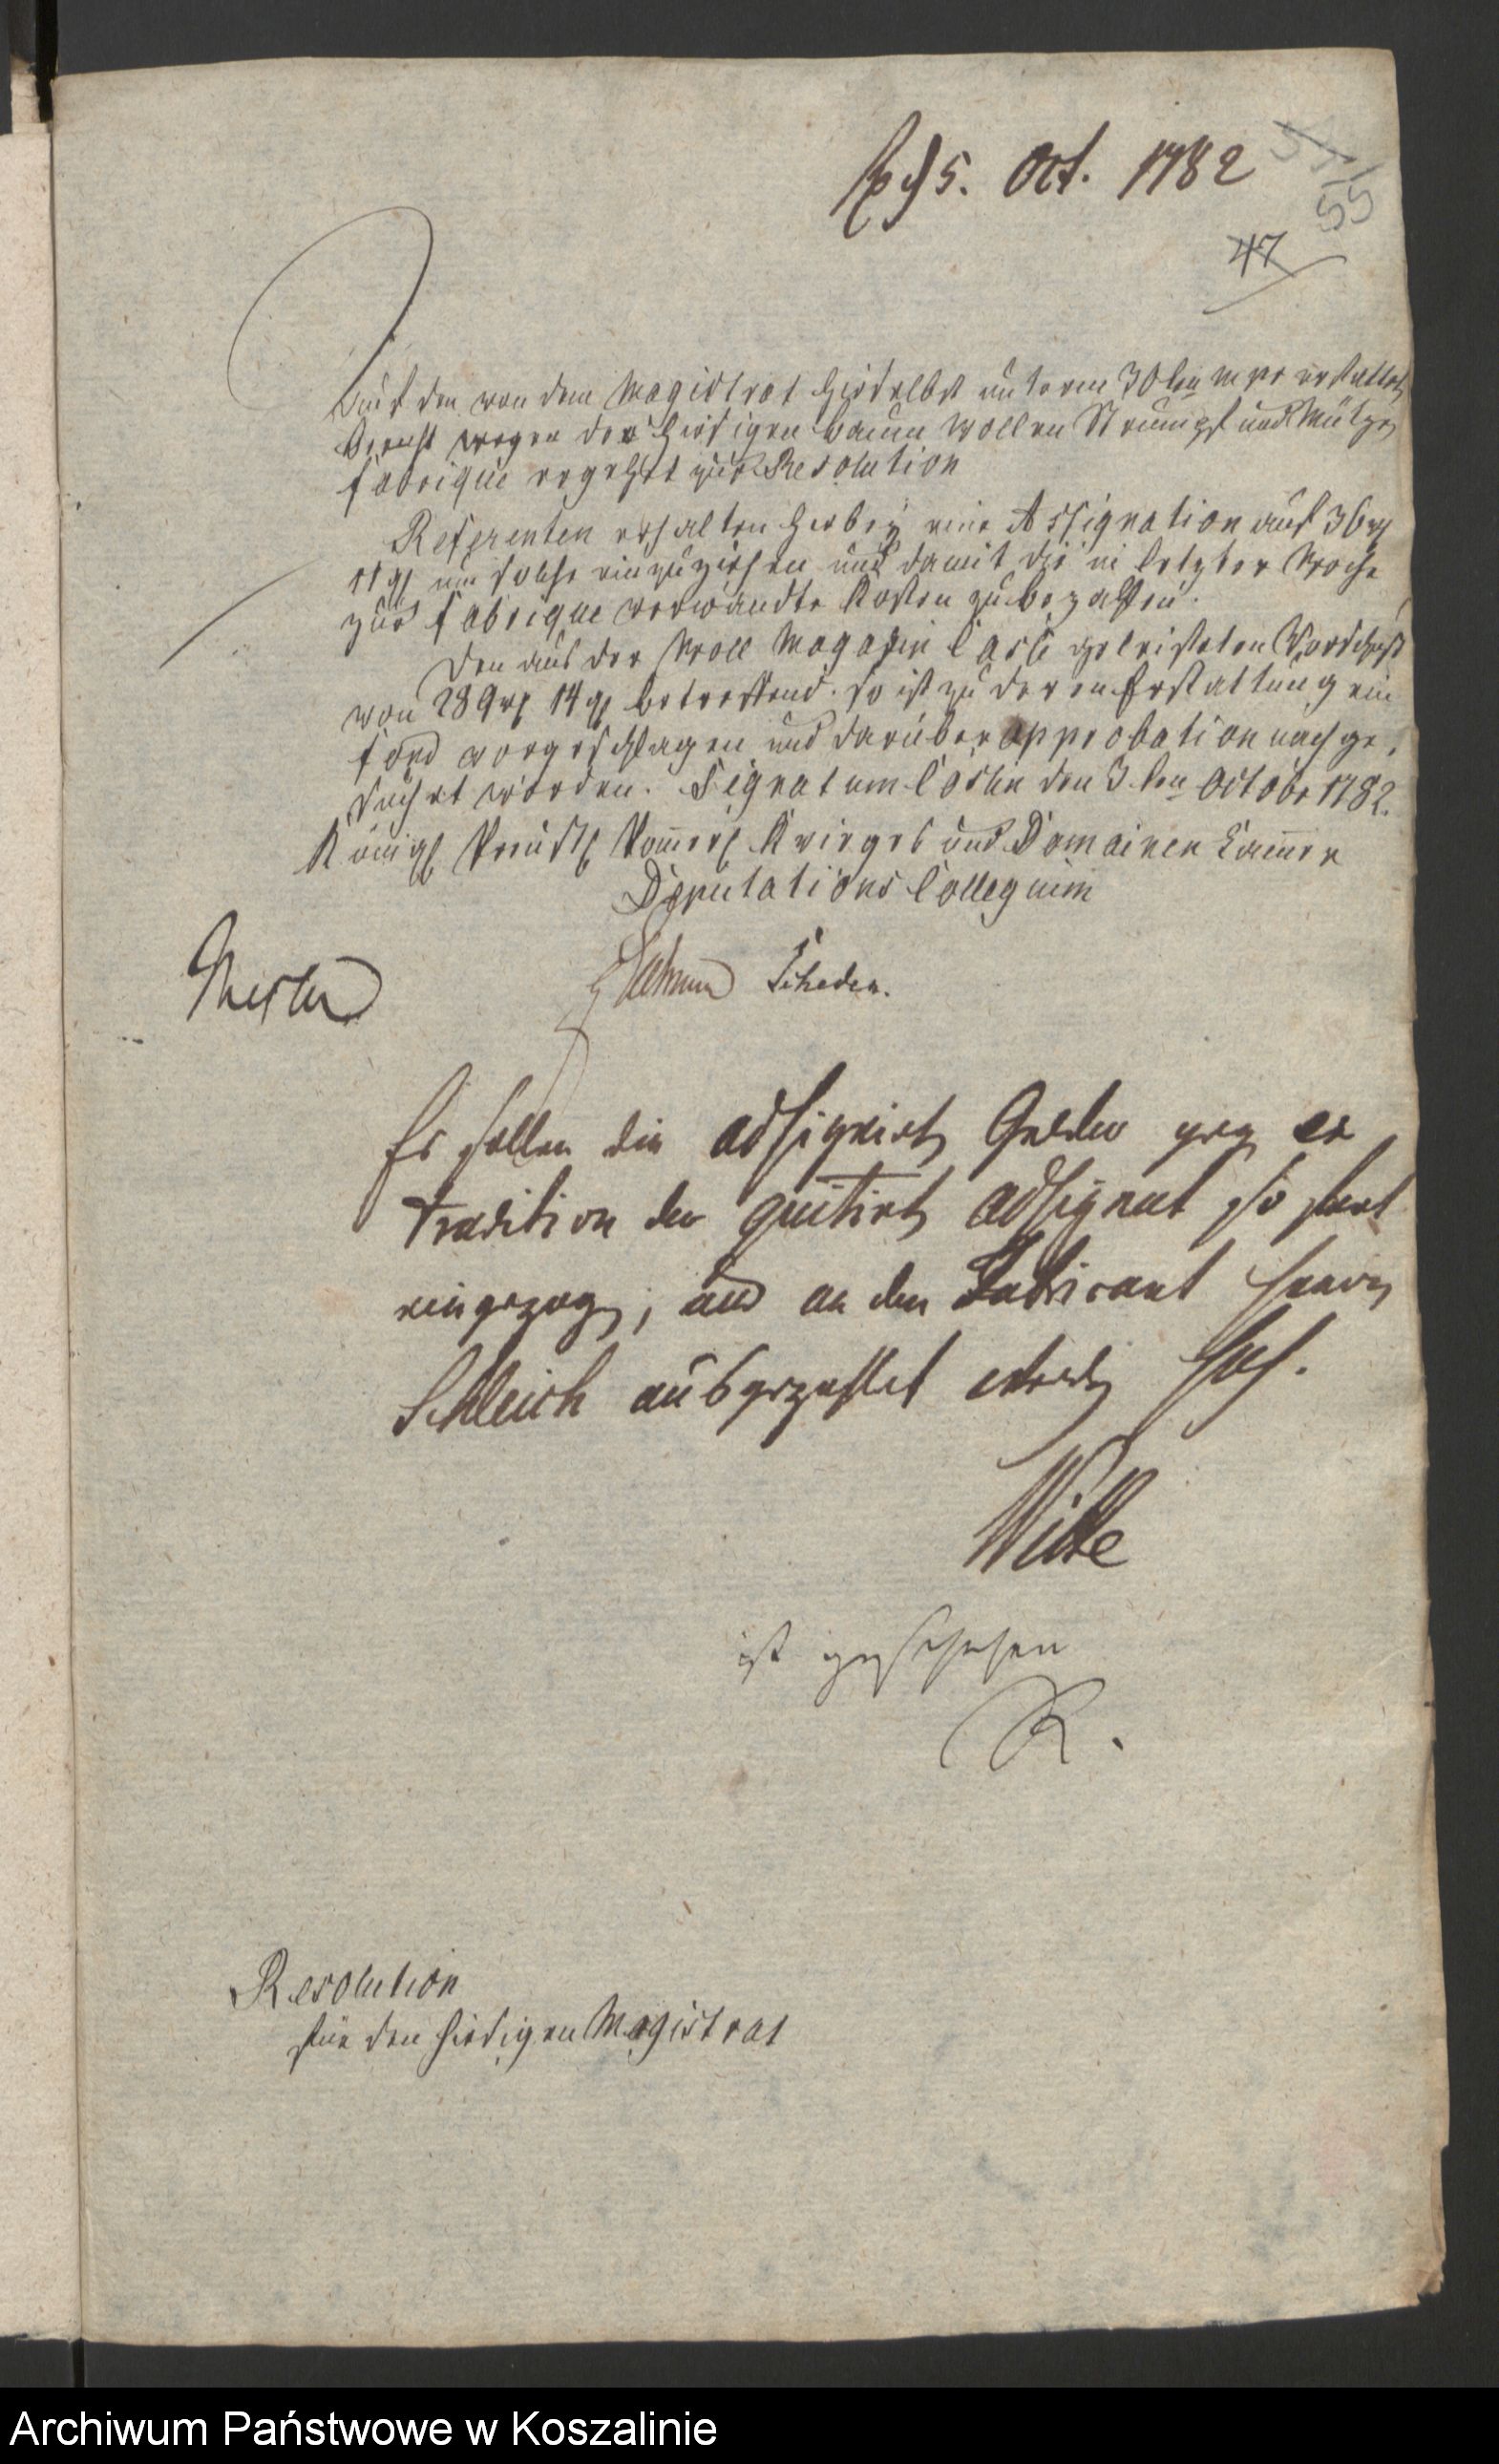 5. Oct. 1782
55
47
Auf den von dem Magistrat hieselbst unterm 30ten m pr erstatteten
Bericht wegen der hiesigen baum wollen Strumpf und Mützen
Fabrique ergehet zur Resolution
Referenten erhalten hierbey eine Assignation auf 36 rthl
11 gl um solche einzuziehen und damit die in letzter Woche
zur Fabrique verwandte Kosten zu bezahlen.
Den aus der Woll Magazin Casse geleisteten Vorschuß
von 289 rthl 14 gl betreffend. so ist zu deren Erstattung ein
fond vorgeschlagen und darüber approbation nachge,
suchet worden. Signatum Cöslin den 3 ten Octobr 1782.
Königl Preußl Pommerl Krieges und Domainen Cammer
Deputations Collegium
Scheden.
Es sollen die adsignirte Gelder gegen ex
tradition der quitirten adsignat so fort
eingezogen, und an den Fabricant
Schleich ausgezahlet werden
Witte
ist geschehen
R.
Resolution
für den hiesigen Magistrat
Archiwum Państwowe w Koszalinie